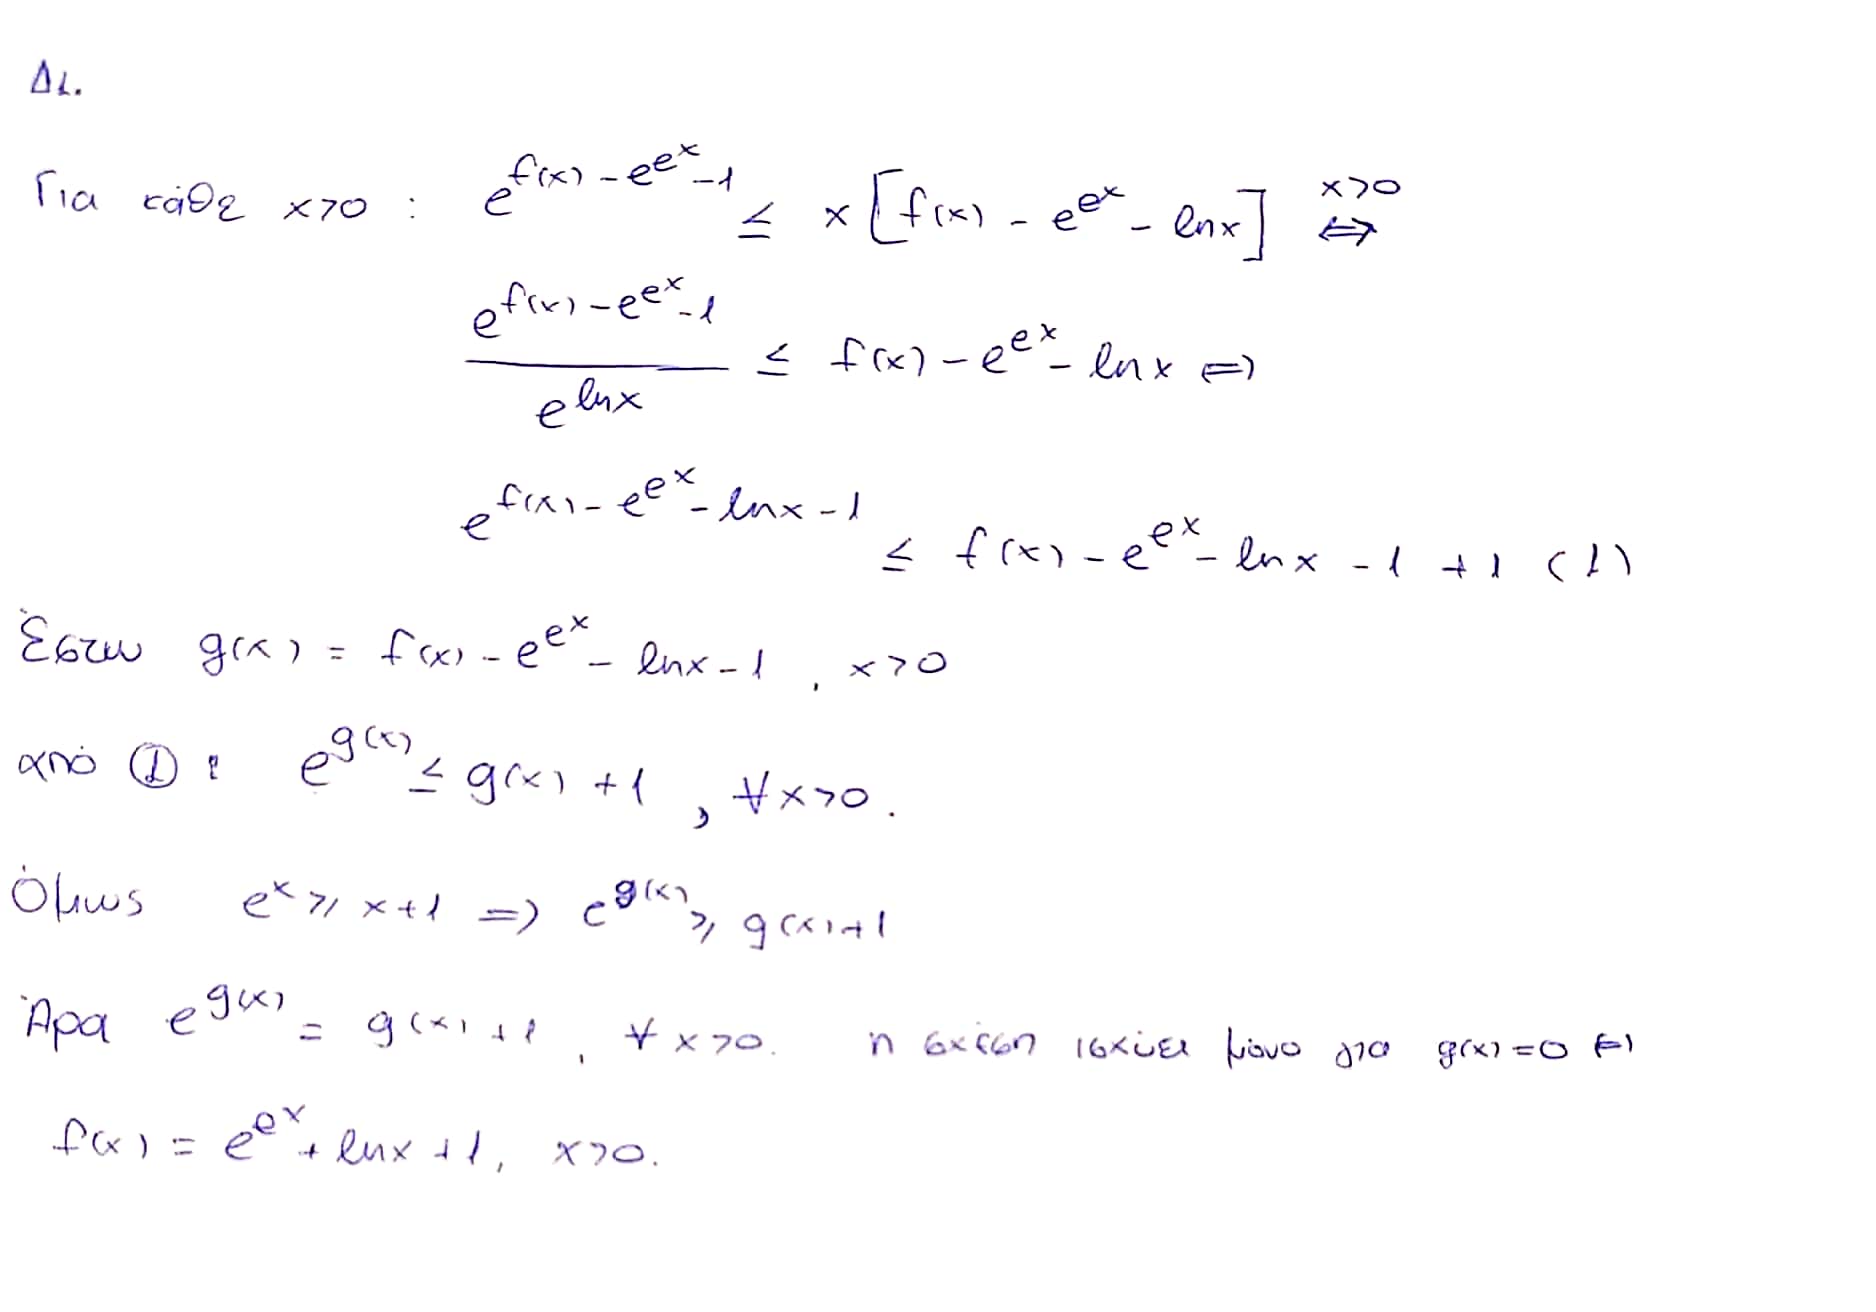 Δ1.
Για κάθε x>0 : e^{f(x) - e^{e^x} - 1} ≤ x [f(x) - e^{e^x} - lnx] x>0 ⇔
e^{f(x) - e^{e^x} - 1} / e^{lnx} ≤ f(x) - e^{e^x} - lnx ⇔
e^{f(x) - e^{e^x} - lnx - 1} ≤ f(x) - e^{e^x} - lnx - 1 + 1 (1)
Έστω g(x) = f(x) - e^{e^x} - lnx - 1 , x>0
από ① : e^{g(x)} ≤ g(x) + 1 , ∀x>0.
Όμως e^x ≥ x+1 ⇒ e^{g(x)} ≥ g(x)+1
Άρα e^{g(x)} = g(x)+1 , ∀x>0. η σχέση ισχύει μόνο για g(x)=0 ⇔
f(x) = e^{e^x} + lnx + 1, x>0.